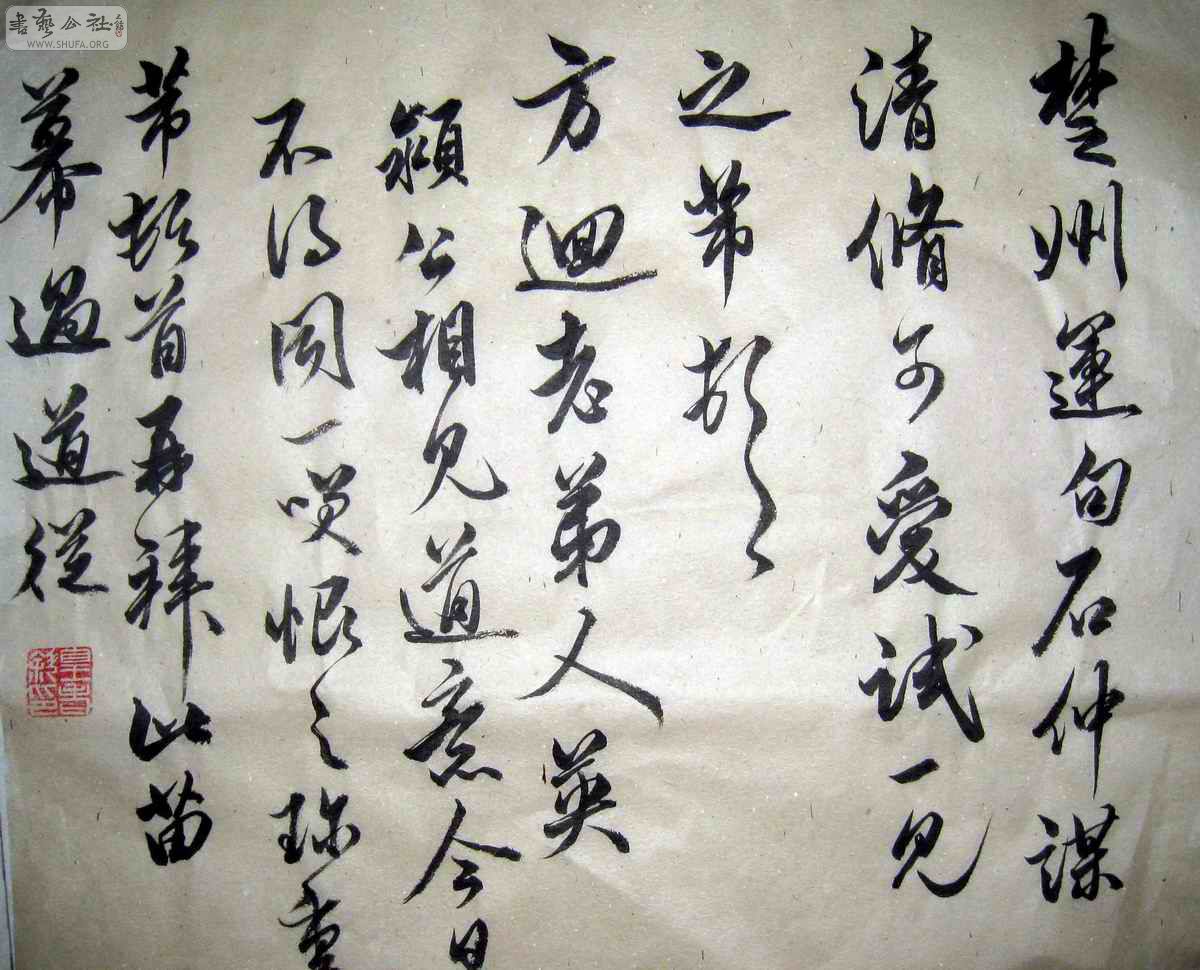 楚州運句石仲謀
清脩可愛試一見
之芾頓首
方迴老弟人英
潁公相見道意今日
不得同一笑恨之珍重
芾頓首再拜此留
幕過道從
書藝公社
WWW.SHUFA.ORG